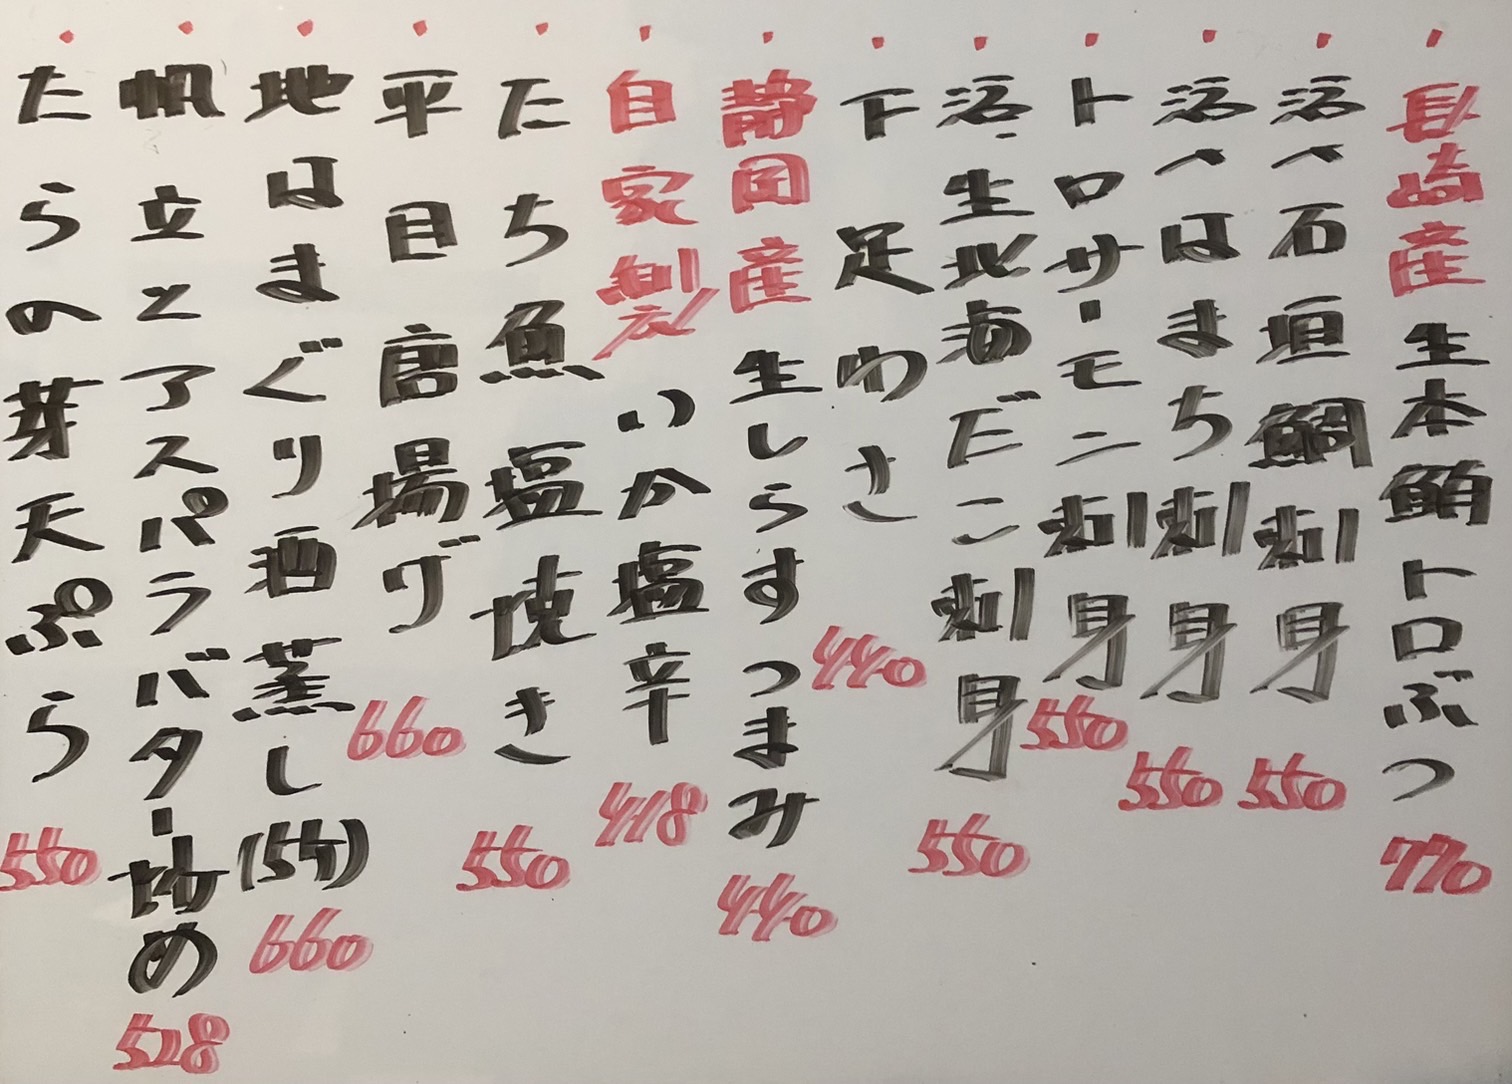 ・長崎産 生本鮪トロぶつ 770
・活〆石垣鯛刺身 550
・活〆はまち刺身 550
・トロサーモン刺身 550
・活・生北海だこ刺身 550
・下足わさ 440
・静岡産 生しらすつまみ 440
・自家製 いか塩辛 418
・たち魚塩焼き 550
・平目唐揚げ 660
・地はまぐり酒蒸し(5ケ) 660
・帆立とアスパラバター炒め 528
・たらの芽天ぷら 550